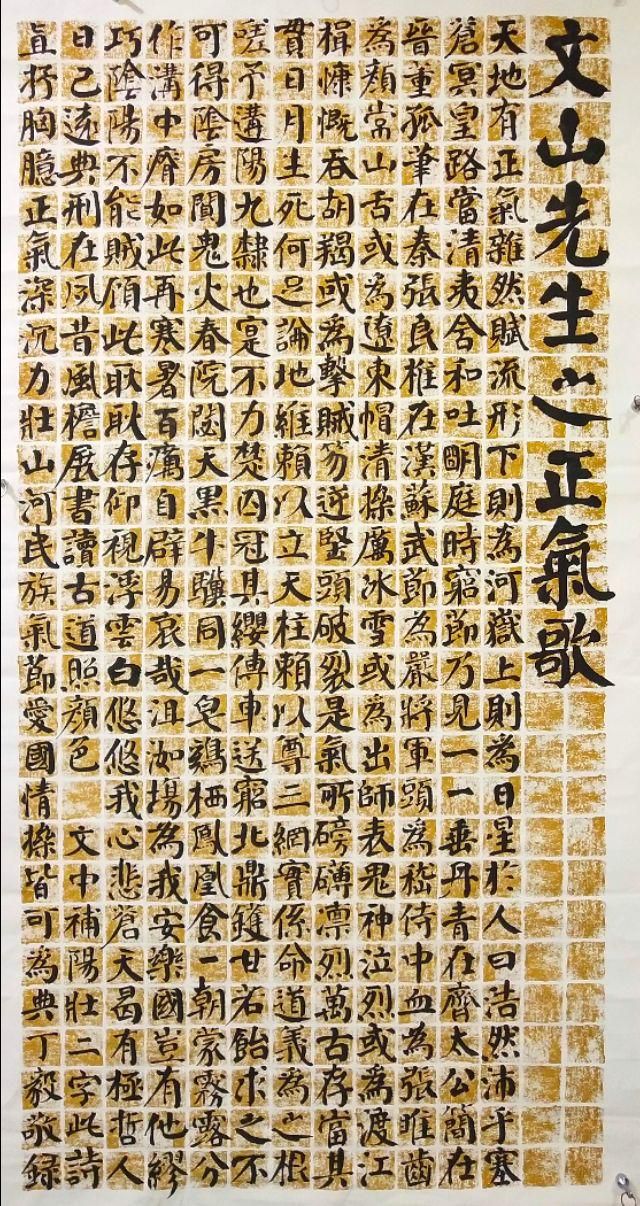 文山先生之正氣歌
天地有正氣雜然賦流形下則為河嶽上則為日星於人曰浩然沛乎塞
蒼冥皇路當清夷含和吐明庭時窮節乃見一一垂丹青在齊太公簡在
晉董孤筆在秦張良椎在漢蘇武節為嚴將軍頭為嵇侍中血為張睢齒
為顏常山舌或為遼東帽清操厲冰雪或為出師表鬼神泣烈或為渡江
楫慷慨吞胡羯或為擊賊笏逆竪頭破裂是氣所磅礴凛烈萬古存當其
貫日月生死何足論地維賴以立天柱賴以尊三綱實係命道義為之根
嗟予遘陽九隸也寔不力楚囚冠其纓傳車送窮北鼎鑊甘若飴求之不
可得陰房闃鬼火春院閟天黑牛驥同一皂鷄栖鳳凰食一朝蒙霧露分
作溝中瘠如此再寒暑百癘自辟易哀哉沮洳場為我安樂國豈有他繆
巧陰陽不能賊顧此耿耿存仰視浮雲白悠悠我心悲蒼天曷有極哲人
日已遠典刑在夙昔風檐展書讀古道照顏色 文中補陽壯二字此詩
直抒胸臆正氣深沉力壯山河民族氣節愛國情操皆可為典丁毅敬録